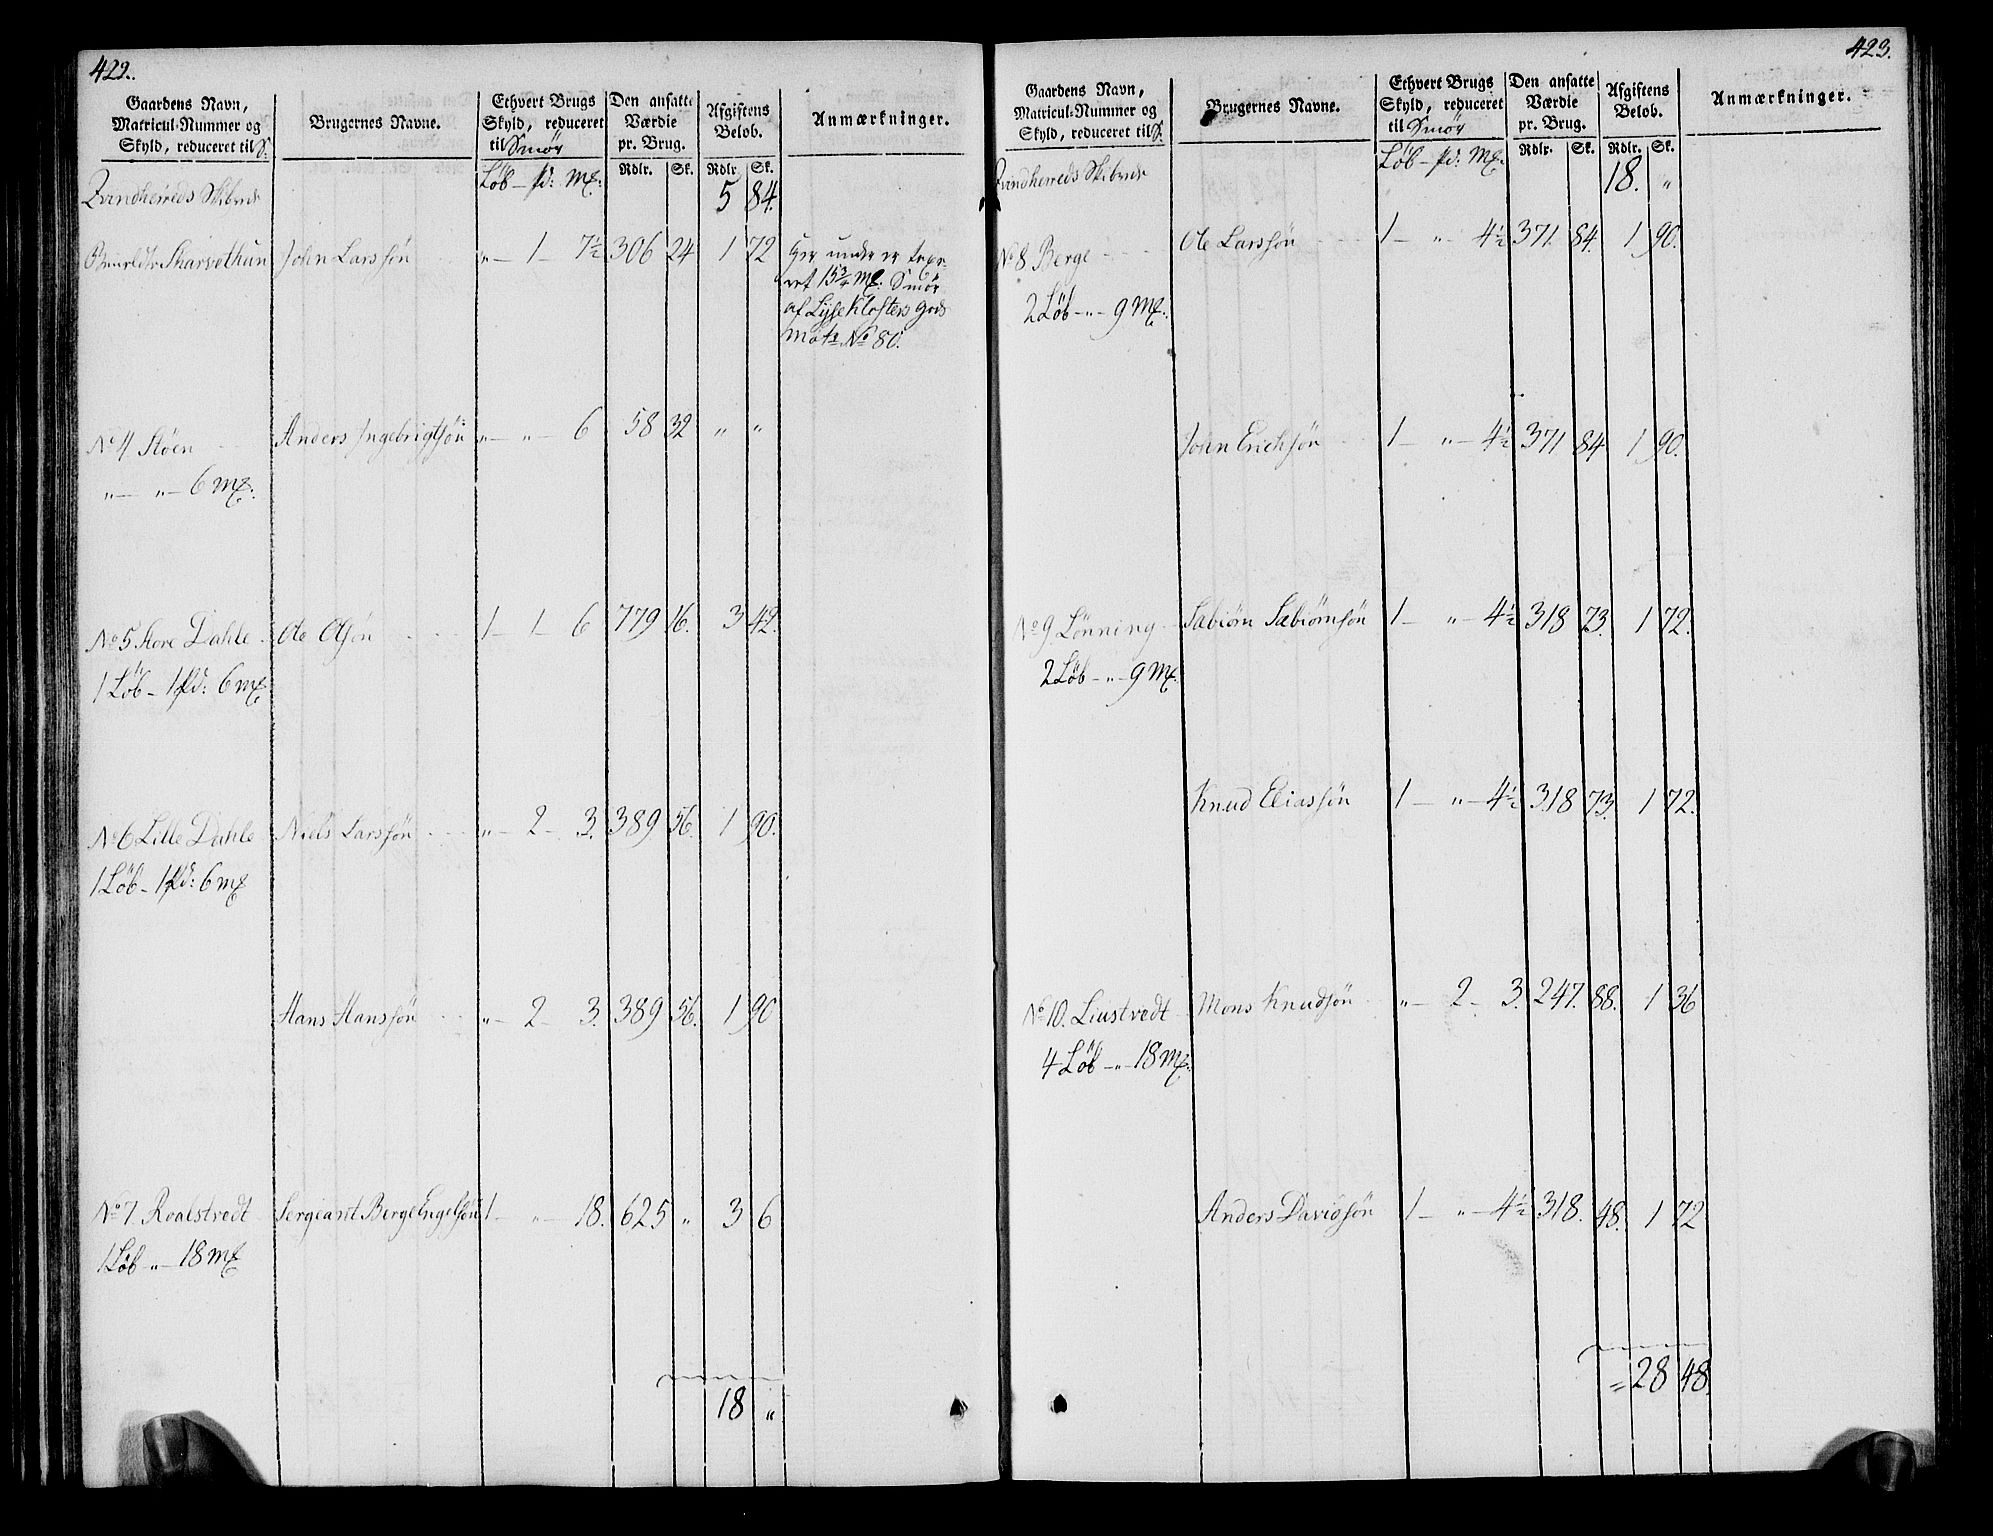 422.
Gaardens Navn, Matricul-Nummer og Skyld, reduceret til S. | Brugernes Navne. | Ethvert Brugs Skyld, reduceret til Smør | Den ansatte Værdie pr. Brug. | Afgiftens Beløb. | Anmærkninger.
Løb - Pd: Mk: | Rdlr. | Sk. | Rdlr. | Sk.
Qvindherreds Skibrede | 5 | 84.
Skarvethun | John Larssøn | „ - 1 - 7½ | 306 | 24 | 1 | 72
Her under er
15¾ Mk: Smør
af Lyse Klosters Gods
Mat: No 80.
No 4 Støen | Anders Ingebrigtsøn | „ - „ - 6 | 58 | 32 | „ | „
„ - „ - 6 Mk:
No 5 Store Dahle | Ole Olsøn | 1 - 1 - 6 | 779 | 16. | 3 | 42.
1 Løb - 1 Pd: 6 Mk
No 6 Lille Dahle | Niels Larssøn | „ - 2 - 3. | 389 | 56. | 1 | 90.
1 Løb - 1 Pd: 6 Mk
Hans Hanssøn | „ - 2 - 3. | 389 | 56. | 1 | 90
No 7 Roalstvedt | Sergeant Berge Engelsøn | 1 - „ - 18. | 625 | „ | 3 | 6
1 Løb - „ - 18 Mk
18 | „
423.
Gaardens Navn, Matricul-Nummer og Skyld, reduceret til S. | Brugernes Navne. | Ethvert Brugs Skyld, reduceret til Smør | Den ansatte Værdie pr. Brug. | Afgiftens Beløb. | Anmærkninger.
Løb - Pd: Mk: | Rdlr. | Sk. | Rdlr. | Sk.
Qvindherreds Skibrede | 18. | „
No 8 Berge | Ole Larssøn | 1 - „ - 4½ | 371. | 84. | 1 | 90.
2 Løb - „ - 9 Mk:
John Erichsøn | 1 - „ - 4½ | 371 | 84 | 1 | 90.
No 9. Lønning | Sæbiørn Sæbiørnsøn | 1 - „ - 4½ | 318 | 73. | 1 | 72.
2 Løb - „ - 9 Mk:
Knud Eliassøn | 1 - „ - 4½ | 318 | 73. | 1 | 72.
No 10. Liustvedt | Mons Knudsøn | „ - 2 - 3. | 247. | 88. | 1 | 36
4 Løb - „ - 18 Mk:
Anders Davidsøn | 1 - „ - 4½ | 318. | 48. | 1 | 72
28 | 48.